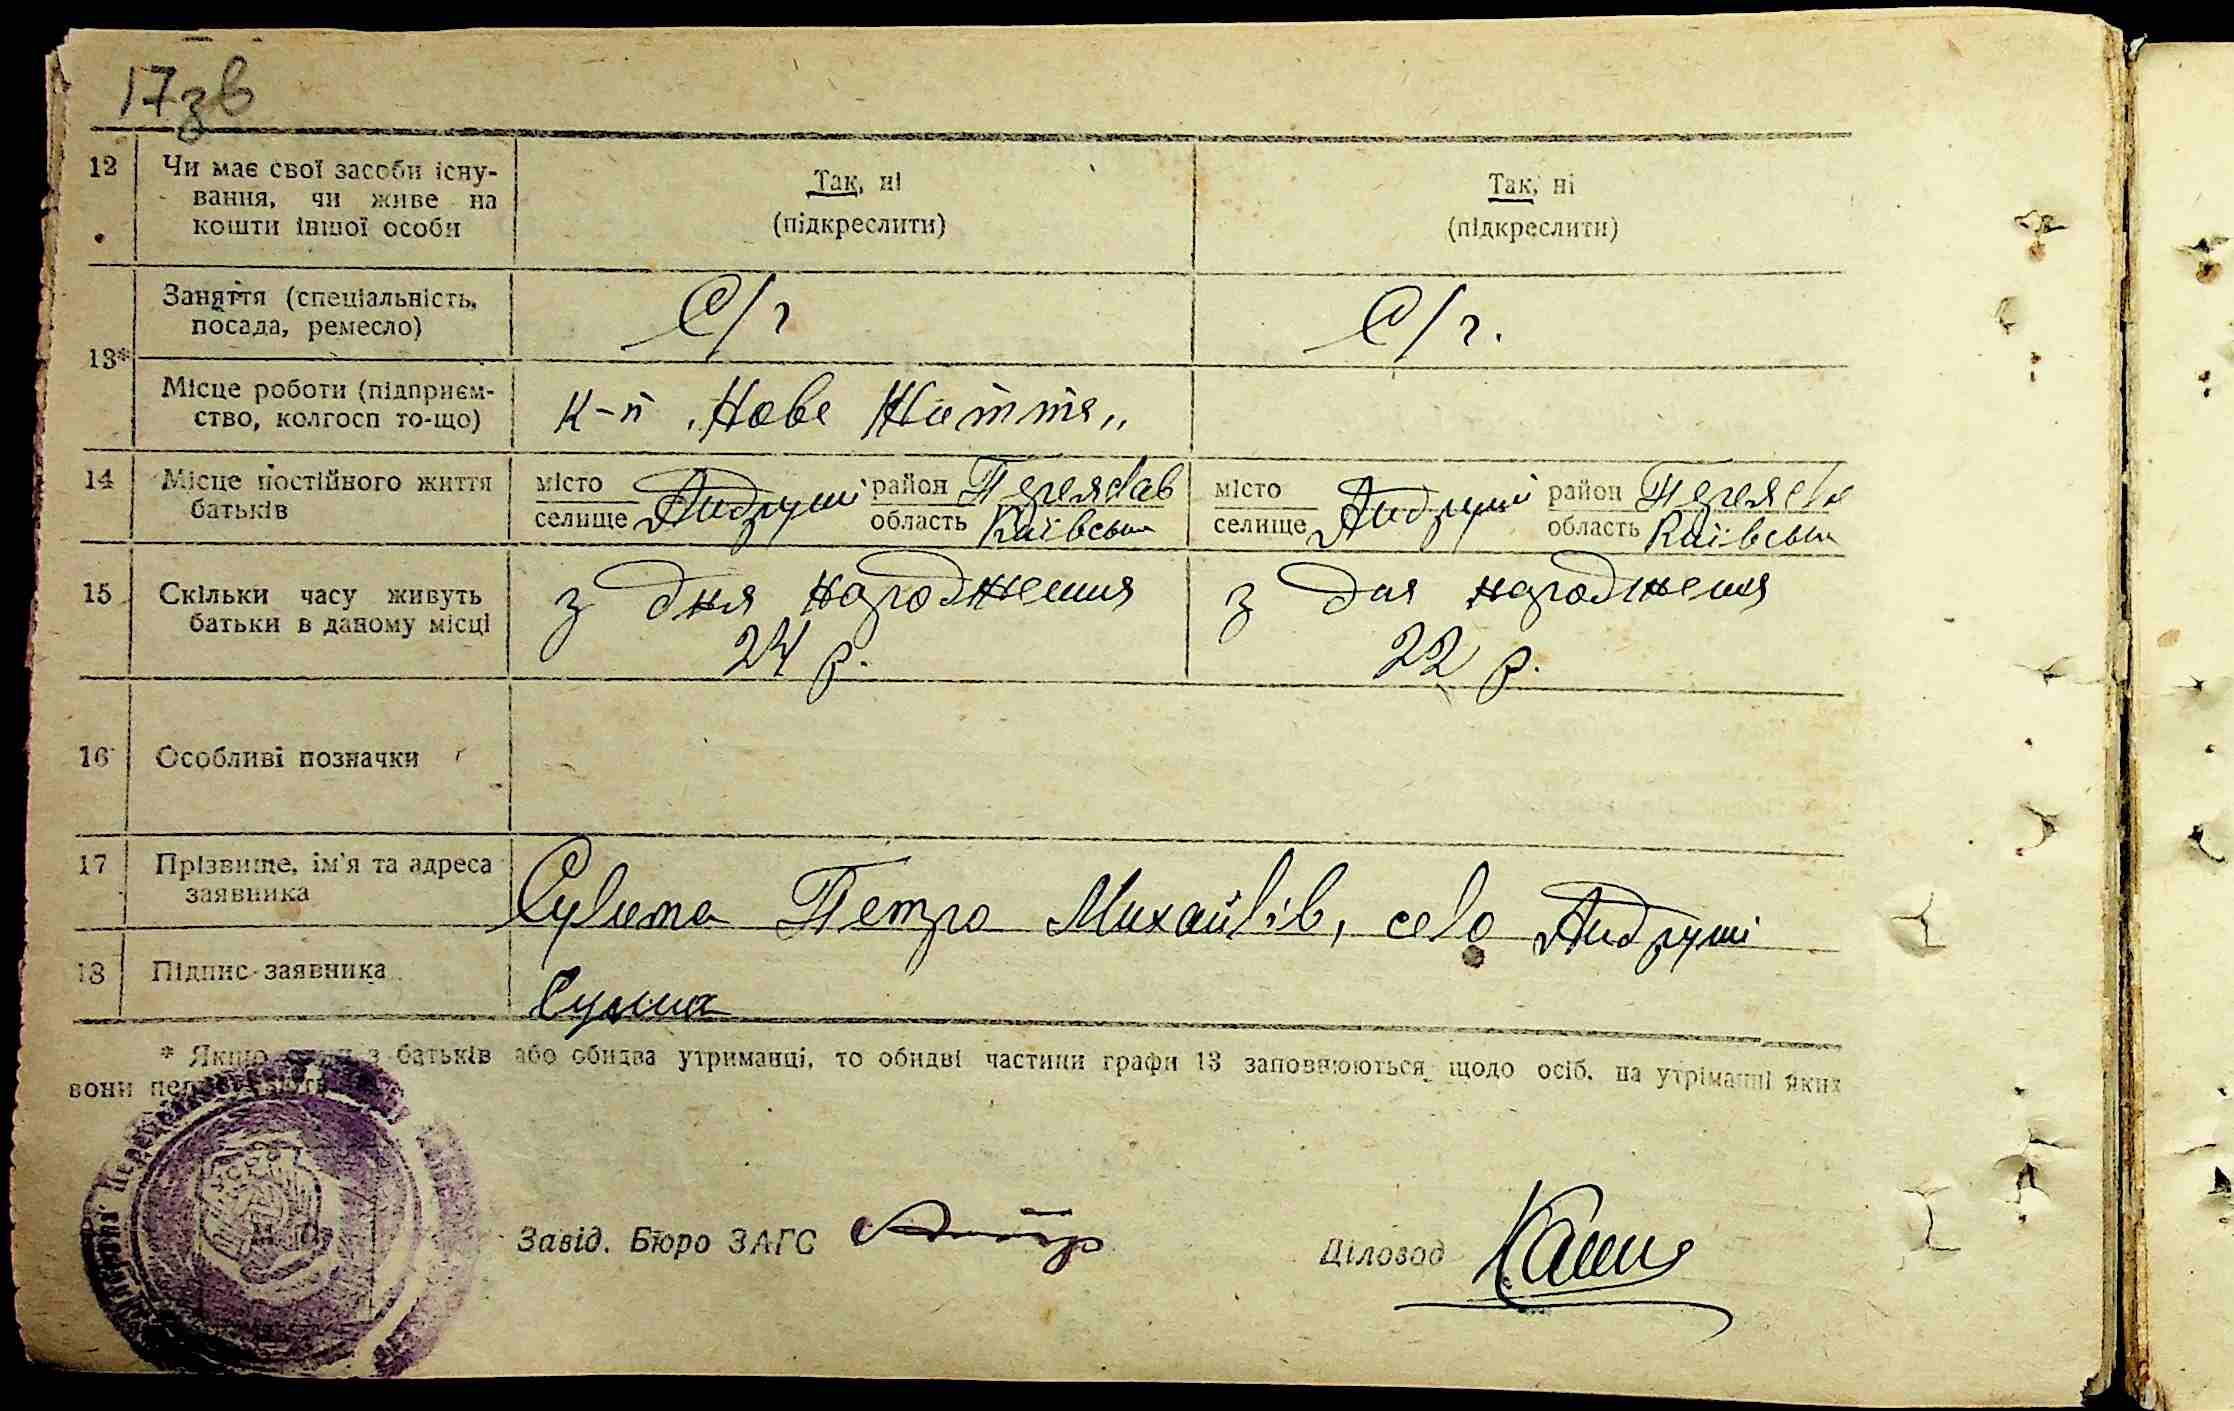 17зв
12 Чи має свої засоби існу- Так, ні Так, ні
вання, чи живе на (підкреслити) (підкреслити)
кошти іншої особи
Заняття (спеціальність, С/г С/г.
посада, ремесло)
13*
Місце роботи (підприєм- к-п „Нове Життя„
ство, колгосп то-що)
14 Місце постійного життя місто Андруші район Переяслав місто Андруші район
батьків селище область Київська селище область Київська
15 Скільки часу живуть з дня народження з дня народження
батьки в даному місці 24 р. 22 р.
16 Особливі позначки
17 Прізвище, ім'я та адреса Сулима Петро Михайлів, село Андруші
заявника
18 Підпис заявника Сулима
* Якщо один з батьків або обидва утриманці, то обидві частини графи 13 заповнюються щодо осіб, на утріманні яких
вони
Завід. Бюро ЗАГС Діловод